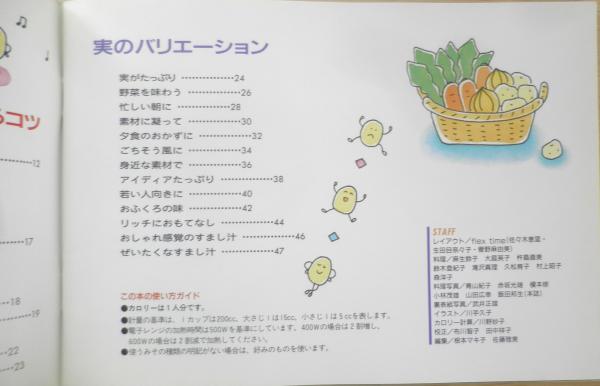 るコツ
12
17
18
19
22
23
実のバリエーション
実がたっぷり ……………24
野菜を味わう ……………26
忙しい朝に ……………28
素材に凝って ……………30
夕食のおかずに ……………32
ごちそう風に ……………34
身近な素材で ……………36
アイディアたっぷり ……………38
若い人向きに ……………40
おふくろの味 ……………42
リッチにおもてなし ……………44
おしゃれ感覚のすまし汁 ……………46
ぜいたくなすまし汁 ……………47
この本の使い方ガイド
●カロリーは1人分です。
●計量の基準は、1カップは200cc、大さじ1は15cc、小さじ1は5ccを表します。
●電子レンジの加熱時間は500Wを基準にしています。400Wの場合は2割増し、
600Wの場合は2割減で加熱してください。
●使うみその種類の明記がない場合は、好みのものを使います。
STAFF
レイアウト／flex time(佐々木恵里・
生田目奈々子・菅野麻由美)
料理／麻生鈴子 大庭英子 枠島直美
鈴木登紀子 滝沢真理 久松育子 村上昭子
森洋子
料理写真／青山紀子 赤坂光雄 榎本修
小林茂雄 山田広幸 飯田和生(本誌)
裏表紙写真／武井正雄
イラスト／川手久子
カロリー計算／川野妙子
校正／布川智子 田中祥子
編集／根本マキ子 佐藤雅美